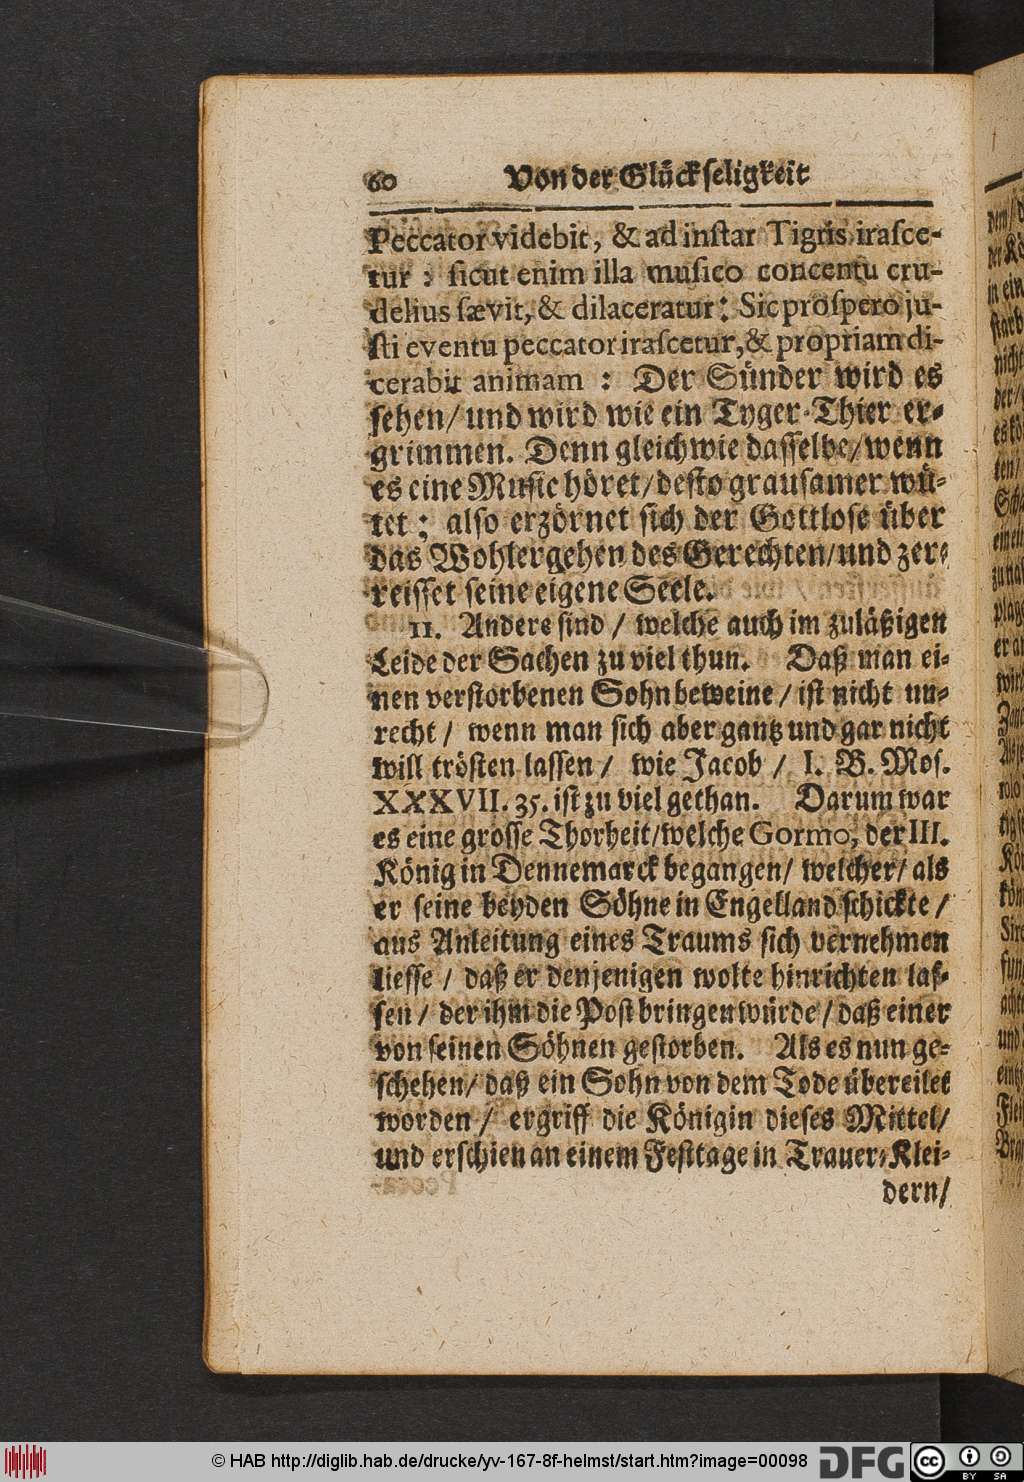 60 Von der Glückseligkeit
Peccator videbit, & ad instar Tigris irasce-
tur : sicut enim illa musico concentu cru-
delius sævit, & dilaceratur : Sic prospero ju-
sti eventu peccator irascetur, & propriam di-
cerabit animam : Der Sünder wird es
sehen/ und wird wie ein Tyger-Thier er-
grimmen. Denn gleichwie dasselbe/ wenn
es eine Music höret/ desto grausamer wü-
tet ; also erzörnet sich der Gottlose über
das Wohlergehen des Gerechten/ und zer-
reisset seine eigene Seele.
11. Andere sind / welche auch im zuläßigen
Leide der Sachen zu viel thun. Daß man ei-
nen verstorbenen Sohn beweine / ist nicht un-
recht / wenn man sich aber gantz und gar nicht
will trösten lassen / wie Jacob / I. B. Mos.
XXXVII. 35. ist zu viel gethan. Darum war
es eine grosse Thorheit/ welche Gormo, der III.
König in Dennemarck begangen/ welcher/ als
er seine beyden Söhne in Engelland schickte /
aus Anleitung eines Traums sich vernehmen
liesse / daß er denjenigen wolte hinrichten las-
sen / der ihm die Post bringen würde / daß einer
von seinen Söhnen gestorben. Als es nun ge-
schehen/ daß ein Sohn von dem Tode übereilet
worden / ergriff die Königin dieses Mittel/
und erschien an einem Festtage in Trauer-Klei-
dern/
© HAB http://diglib.hab.de/drucke/yv-167-8f-helmst/start.htm?image=00098
DFG
cc BY SA